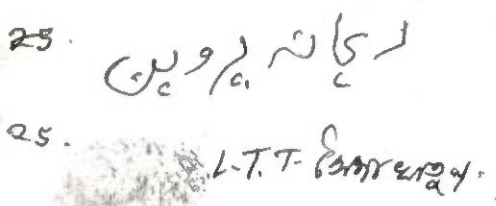 25. ریحانہ پروین
25. L.T.T-